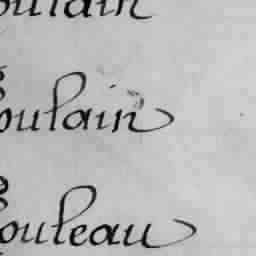 oulain
oulain
ouleau